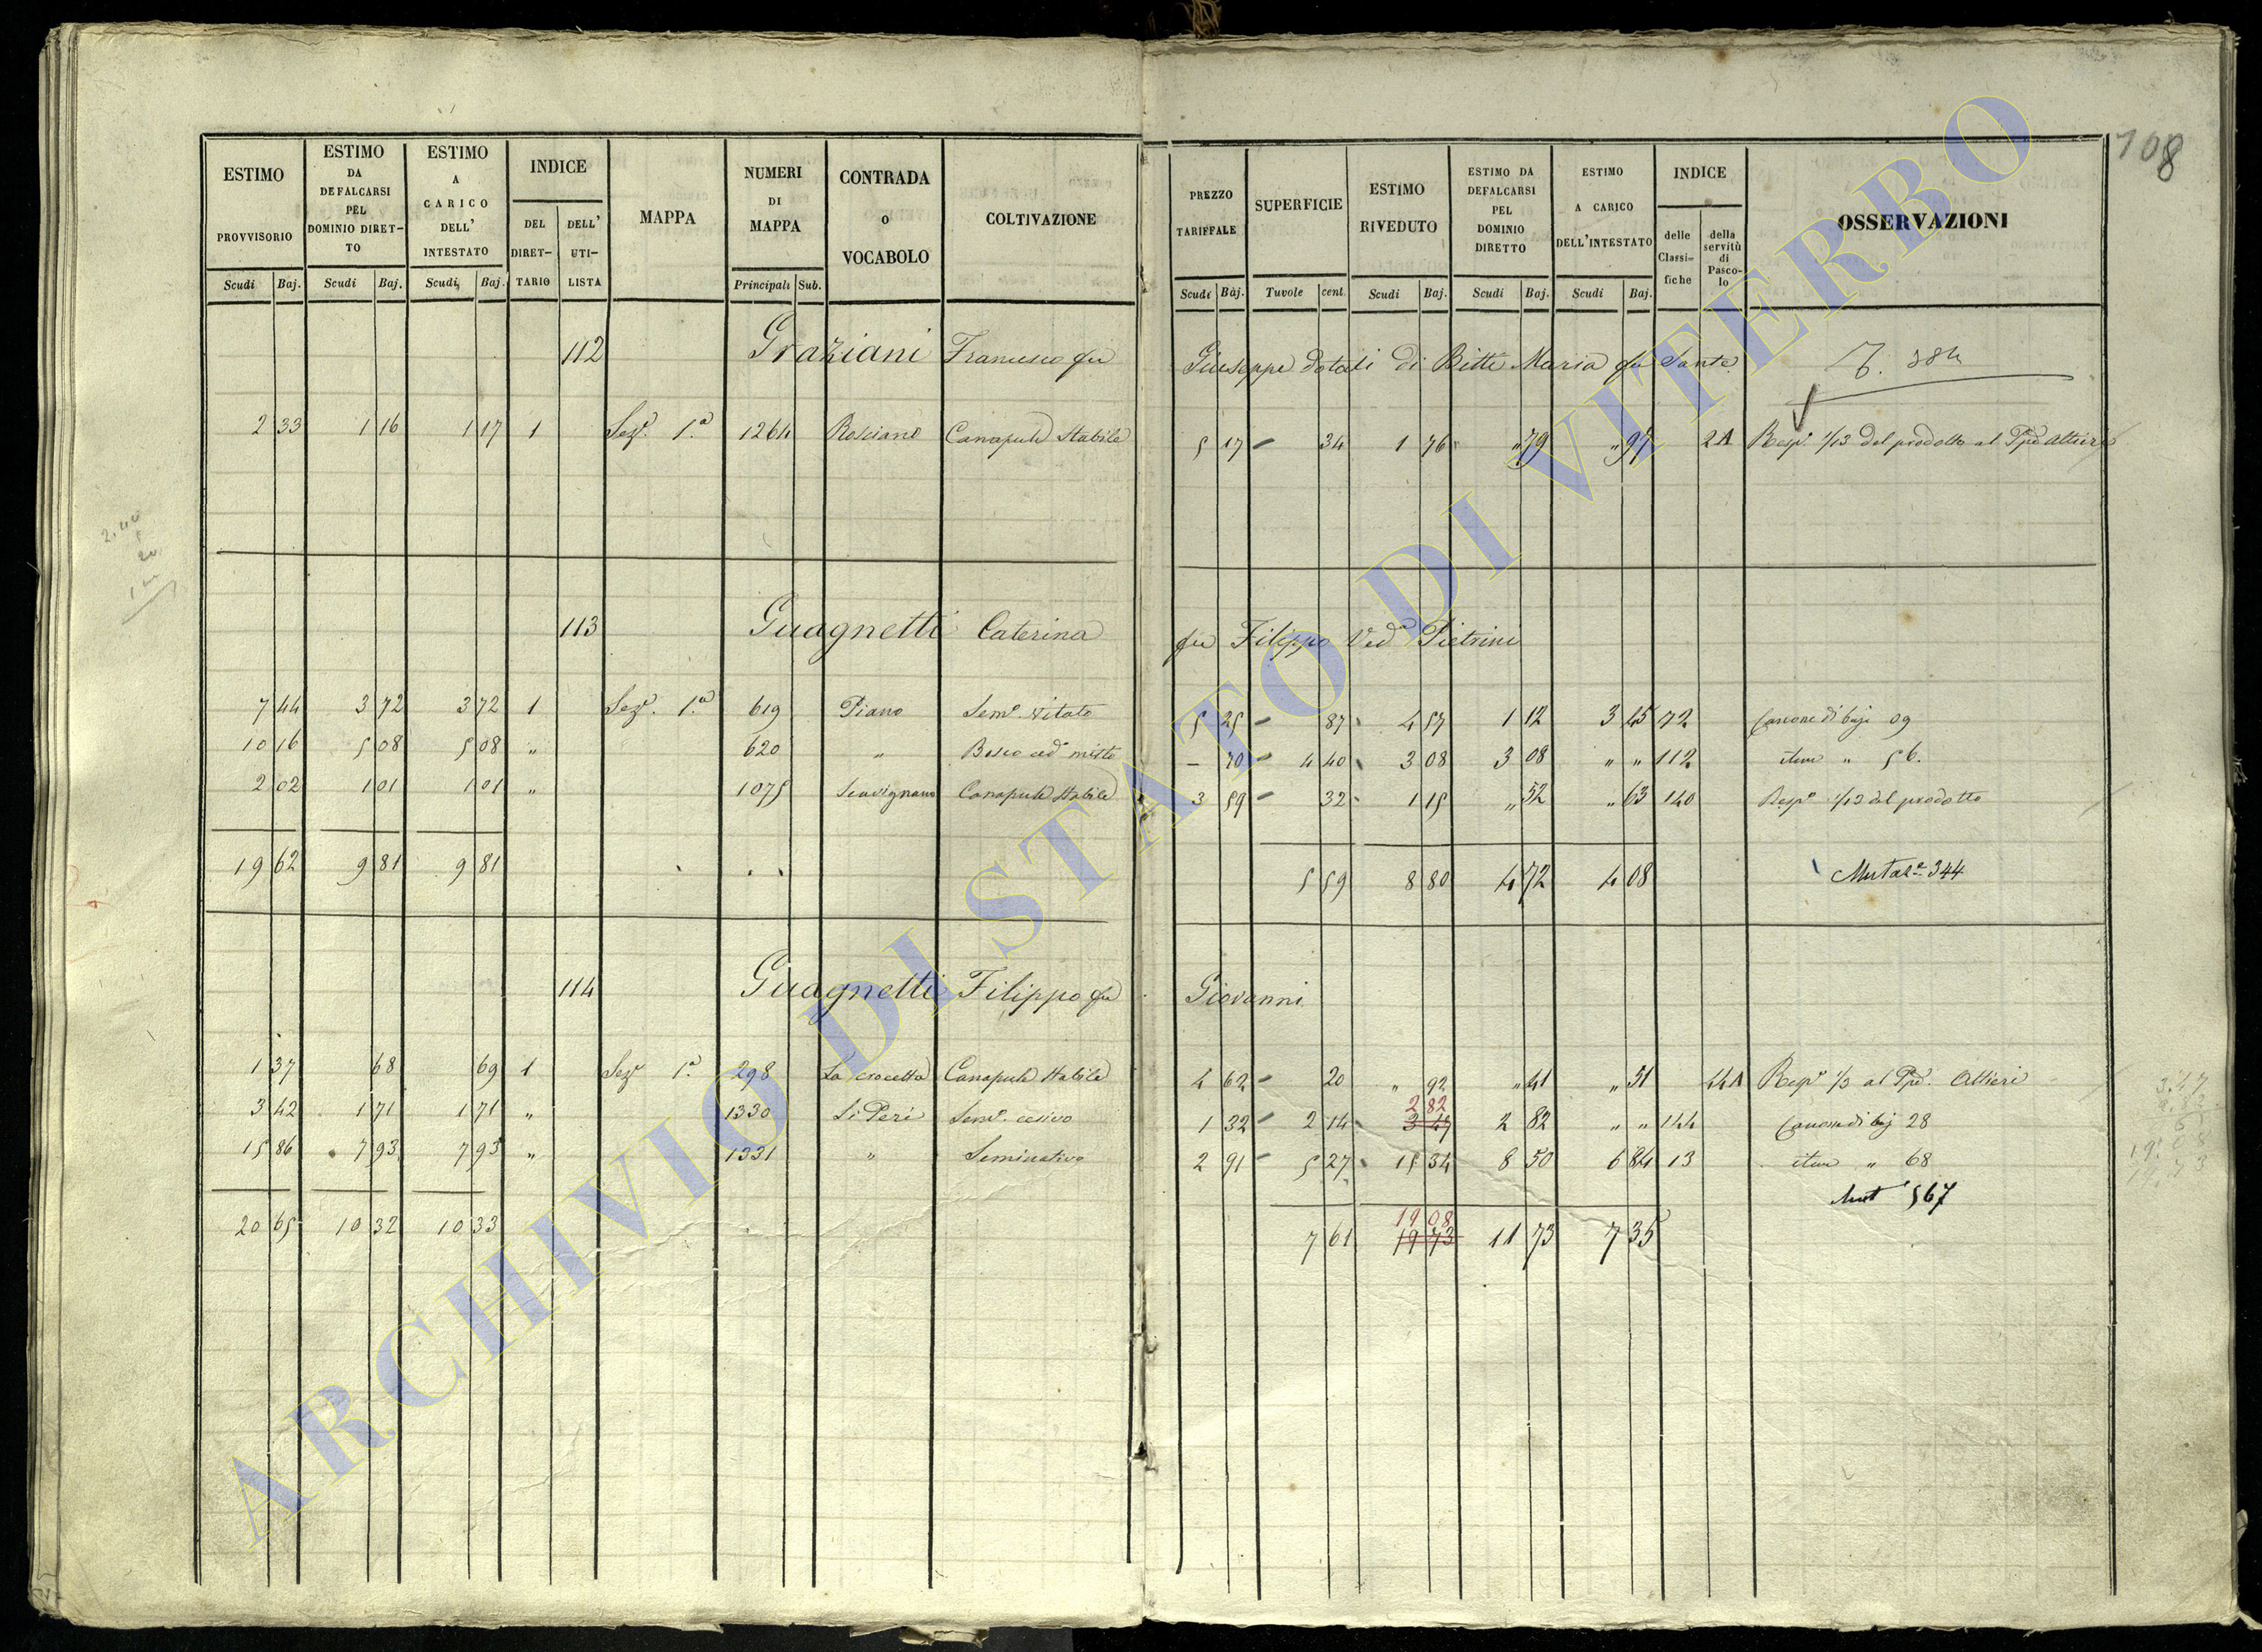 108
ESTIMO PROVVISORIO Scudi Baj.
ESTIMO DA DEFALCARSI PEL DOMINIO DIRETTO Scudi Baj.
ESTIMO A CARICO DELL' INTESTATO Scudi Baj.
INDICE DEL DIRETTARIO DELL' UTILISTA
MAPPA
NUMERI DI MAPPA Principali Sub.
CONTRADA o VOCABOLO
COLTIVAZIONE
PREZZO TARIFFALE Scudi Baj.
SUPERFICIE Tavole cent.
ESTIMO RIVEDUTO Scudi Baj.
ESTIMO DA DEFALCARSI PEL DOMINIO DIRETTO Scudi Baj.
ESTIMO A CARICO DELL'INTESTATO Scudi Baj.
INDICE delle Classifiche della servitù di Pascolo
OSSERVAZIONI
112 Graziani Francesco fu Giuseppe dotali di Bitti Maria fu Sante
2 33 1 16 1 17 1 Sez.e 1.a 1264 Rosciano Canapule Stabile 5 17 - 34 1 76 " 79 " 97 2A Resp.e 1/13 del prodotto al Ppe Altieri
113 Guagnetti Caterina fu Filippo Ved.a Pietrini
7 44 3 72 3 72 1 Sez.e 1.a 619 Piano Sem.o vitato 5 25 - 87 4 57 1 12 3 45 72 Canone di baj. 09
10 16 5 08 5 08 " 620 " Bosco ced.o misto - 70 - 4 40 3 08 3 08 " " 112 item " 56.
2 02 1 01 1 01 " 1075 Canapule Stabile 3 59 - 32 1 15 " 52 " 63 140 Resp.e del prodotto
19 62 9 81 9 81 5 59 8 80 4 72 4 08 344
114 Guagnetti Filippo fu Giovanni
1 37 68 69 1 Sez.e 1.a 298 La crocetta Canapule Stabile 4 62 - 20 " 92 " 41 " 51 44A Resp.e al Ppe Altieri
2 82
3 42 1 71 1 71 " 1330 Li Peri Sem.o cesivo 1 32 - 2 14 3 47 2 82 " " 144 Canone di baj 28
15 86 7 93 7 93 " 1331 " Seminativo 2 91 - 5 27 15 34 8 50 6 84 13 item " 68
Mut 567
19 08
20 65 10 32 10 33 7 61 19 73 11 73 7 35
ARCHIVIO DI STATO DI VITERBO